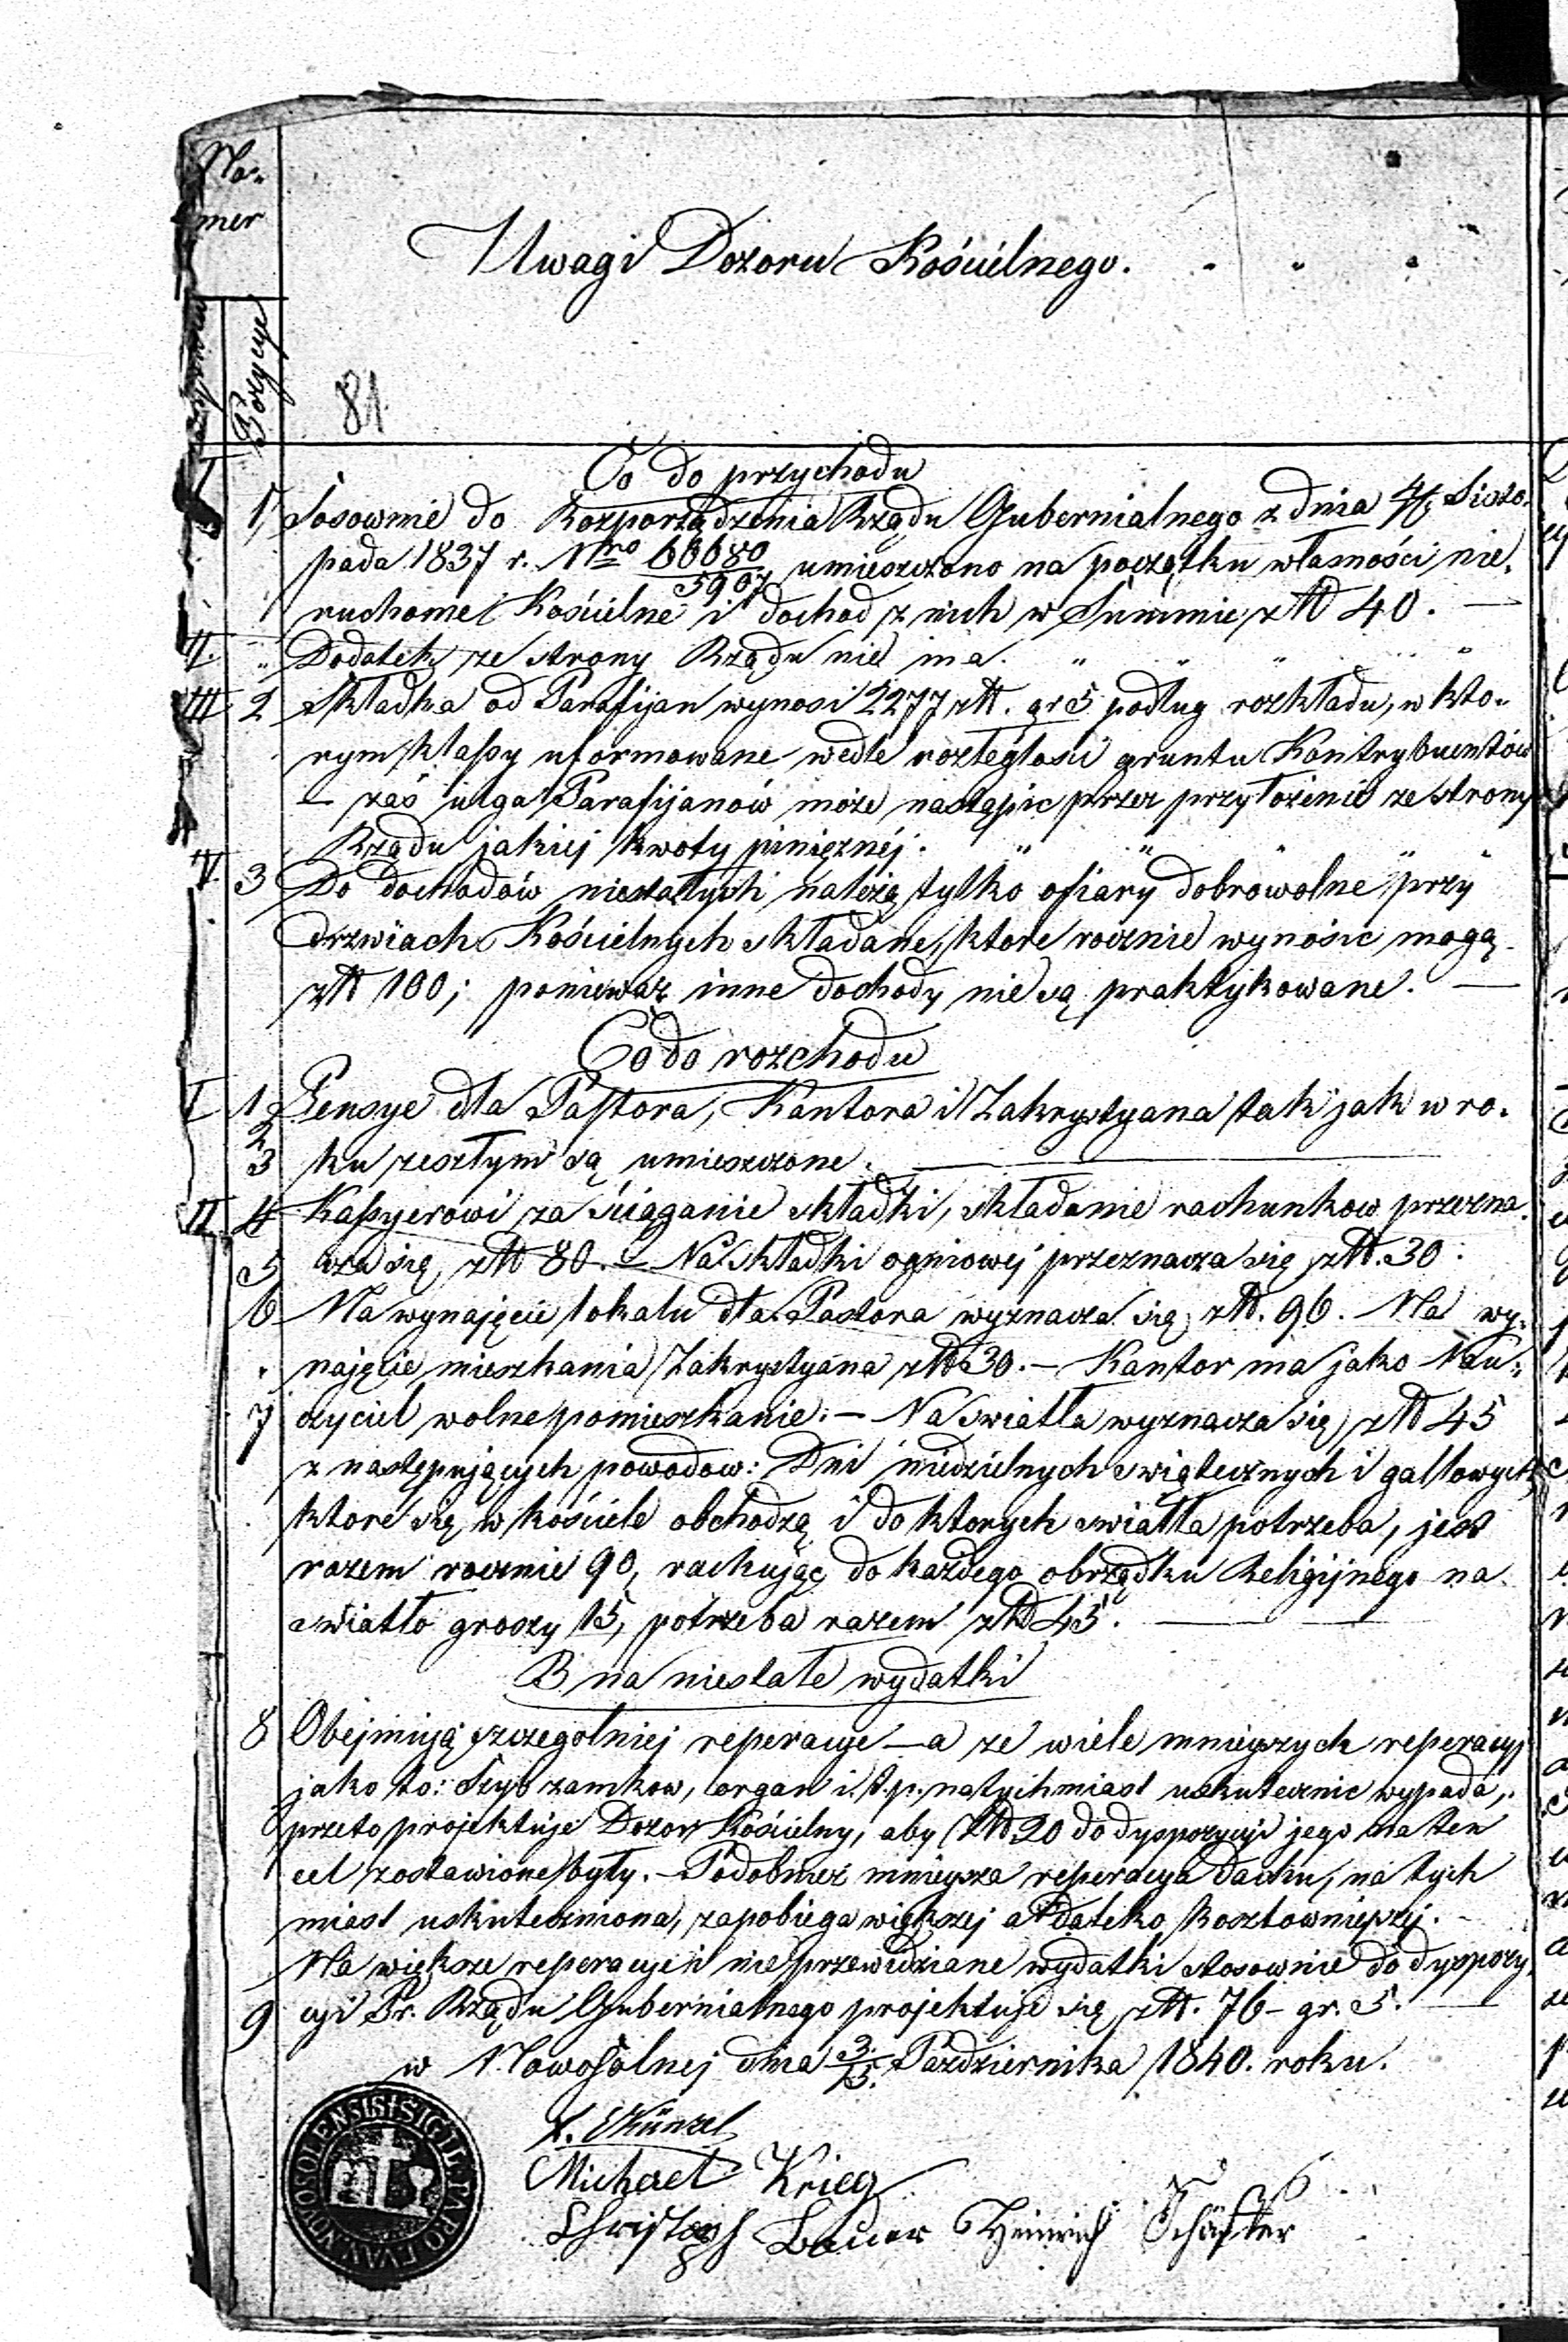 Nu-
mer
Uwagi Dozoru Kościelnego.
Pozycye
81
Co do przychodu
I 1, Sosownie do Rozporządzenia Rządu Gubernialnego z dnia Listo-
pada 1837 r. Nro 66680/5907 umieszczono na początku własności nie-
ruchome Kościelne i dochod z nich w Summie złt 40. —
II. „ Dodatek ze strony Rządu nie ma. „ „ „ „
III 2 Składka od Parafijan wynosi 2277 złt. gr 5 podług rozkładu, w kto-
rym klassy uformowane wedle rozległosci gruntu Kontrybuentów
– zaś ulga Parafijanów może nastąpic przez przyłożenie ze strony
Rządu jakiej kwoty pinięznéj. „ „ „ „ „
IV. 3 Do dochodów niestałych należą tylko ofiary dobrowolne przy
drzwiach Kościelnych składane, ktore rocznie wynosic mogą
złt 100; poniewaz inne dochody nie są praktykowane. —
Co do rozchodu
I 1 Pensye dla Pastora, Kantora i Zakrystyana tak jak w ro-
2
3 ku zeszłym są umieszczone. —
II 4 Kassyerowi za ściąganie składki, składanie rachunkow przezna-
5 cza się złt 80. – Na składki ogniowej przeznacza się złt. 30.
6 Na wynajęcie lokalu dla Pastora wyznacza się złt. 96. Na wy-
najęcie mieszkania Zakrystyana złt 30. – Kantor ma jako Nau-
7 czyciel wolne pomieszkanie. – Na swiatła wyznacza się złt 45
z następujących powodow: Dni niedzielnych swiątecznych i gallowych,
ktore się w kościele obchodzą i do ktorych swiatła potrzeba, jest
razem rocznie 90, rachując do każdego obrządku Religijnego na
swiatło groszy 15, potrzeba razem złt 45. —
B na niestałe wydatki
8 Obejmują szczegolniej reperacye – a ze wiele mnieyszych reperacyj
jako to: Szyb zamkow, organ i. t. p. natychmiast uskutecznic wypada,
przeto projektuje Dozor Kościelny, aby złt 20 do dyspozycyi jego na ten
cel zostawione były. – Podobnież mnieysza reperacya dachu, na tych
miast uskuteczniona, zapobiega większej a daleko kosztownieyszej.
Na większe reperacye i nie przewidziane wydatki stosownie do dyspozy-
9 cyi Pr. Rządu Gubernialnego projektuje się złt. 76 – gr. 5. —
w Nowosolnej dnia 3/15. Pazdziernika 1840. roku.
Künzel
Michael Krieg
Christoph Bauer Heinrich Schäffer